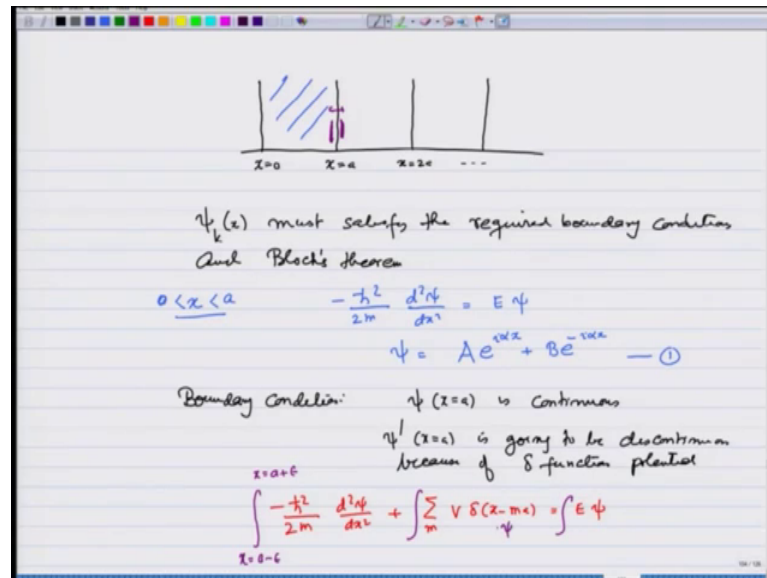 x=0 x=a x=2a ---
ψ_k(x) must satisfy the required boundary condition
and Bloch's theorem
0<x<a -ħ²/2m d²ψ/dx² = Eψ
ψ = Ae^{iαx} + Be^{-iαx} — ①
Boundary Condition: ψ(x=a) is continuous
ψ'(x=a) is going to be discontinuous
because of δ function potential
x=a+ε
∫ -ħ²/2m d²ψ/dx² + ∫ Σ_m V δ(x-ma) ψ = ∫ E ψ
x=a-ε